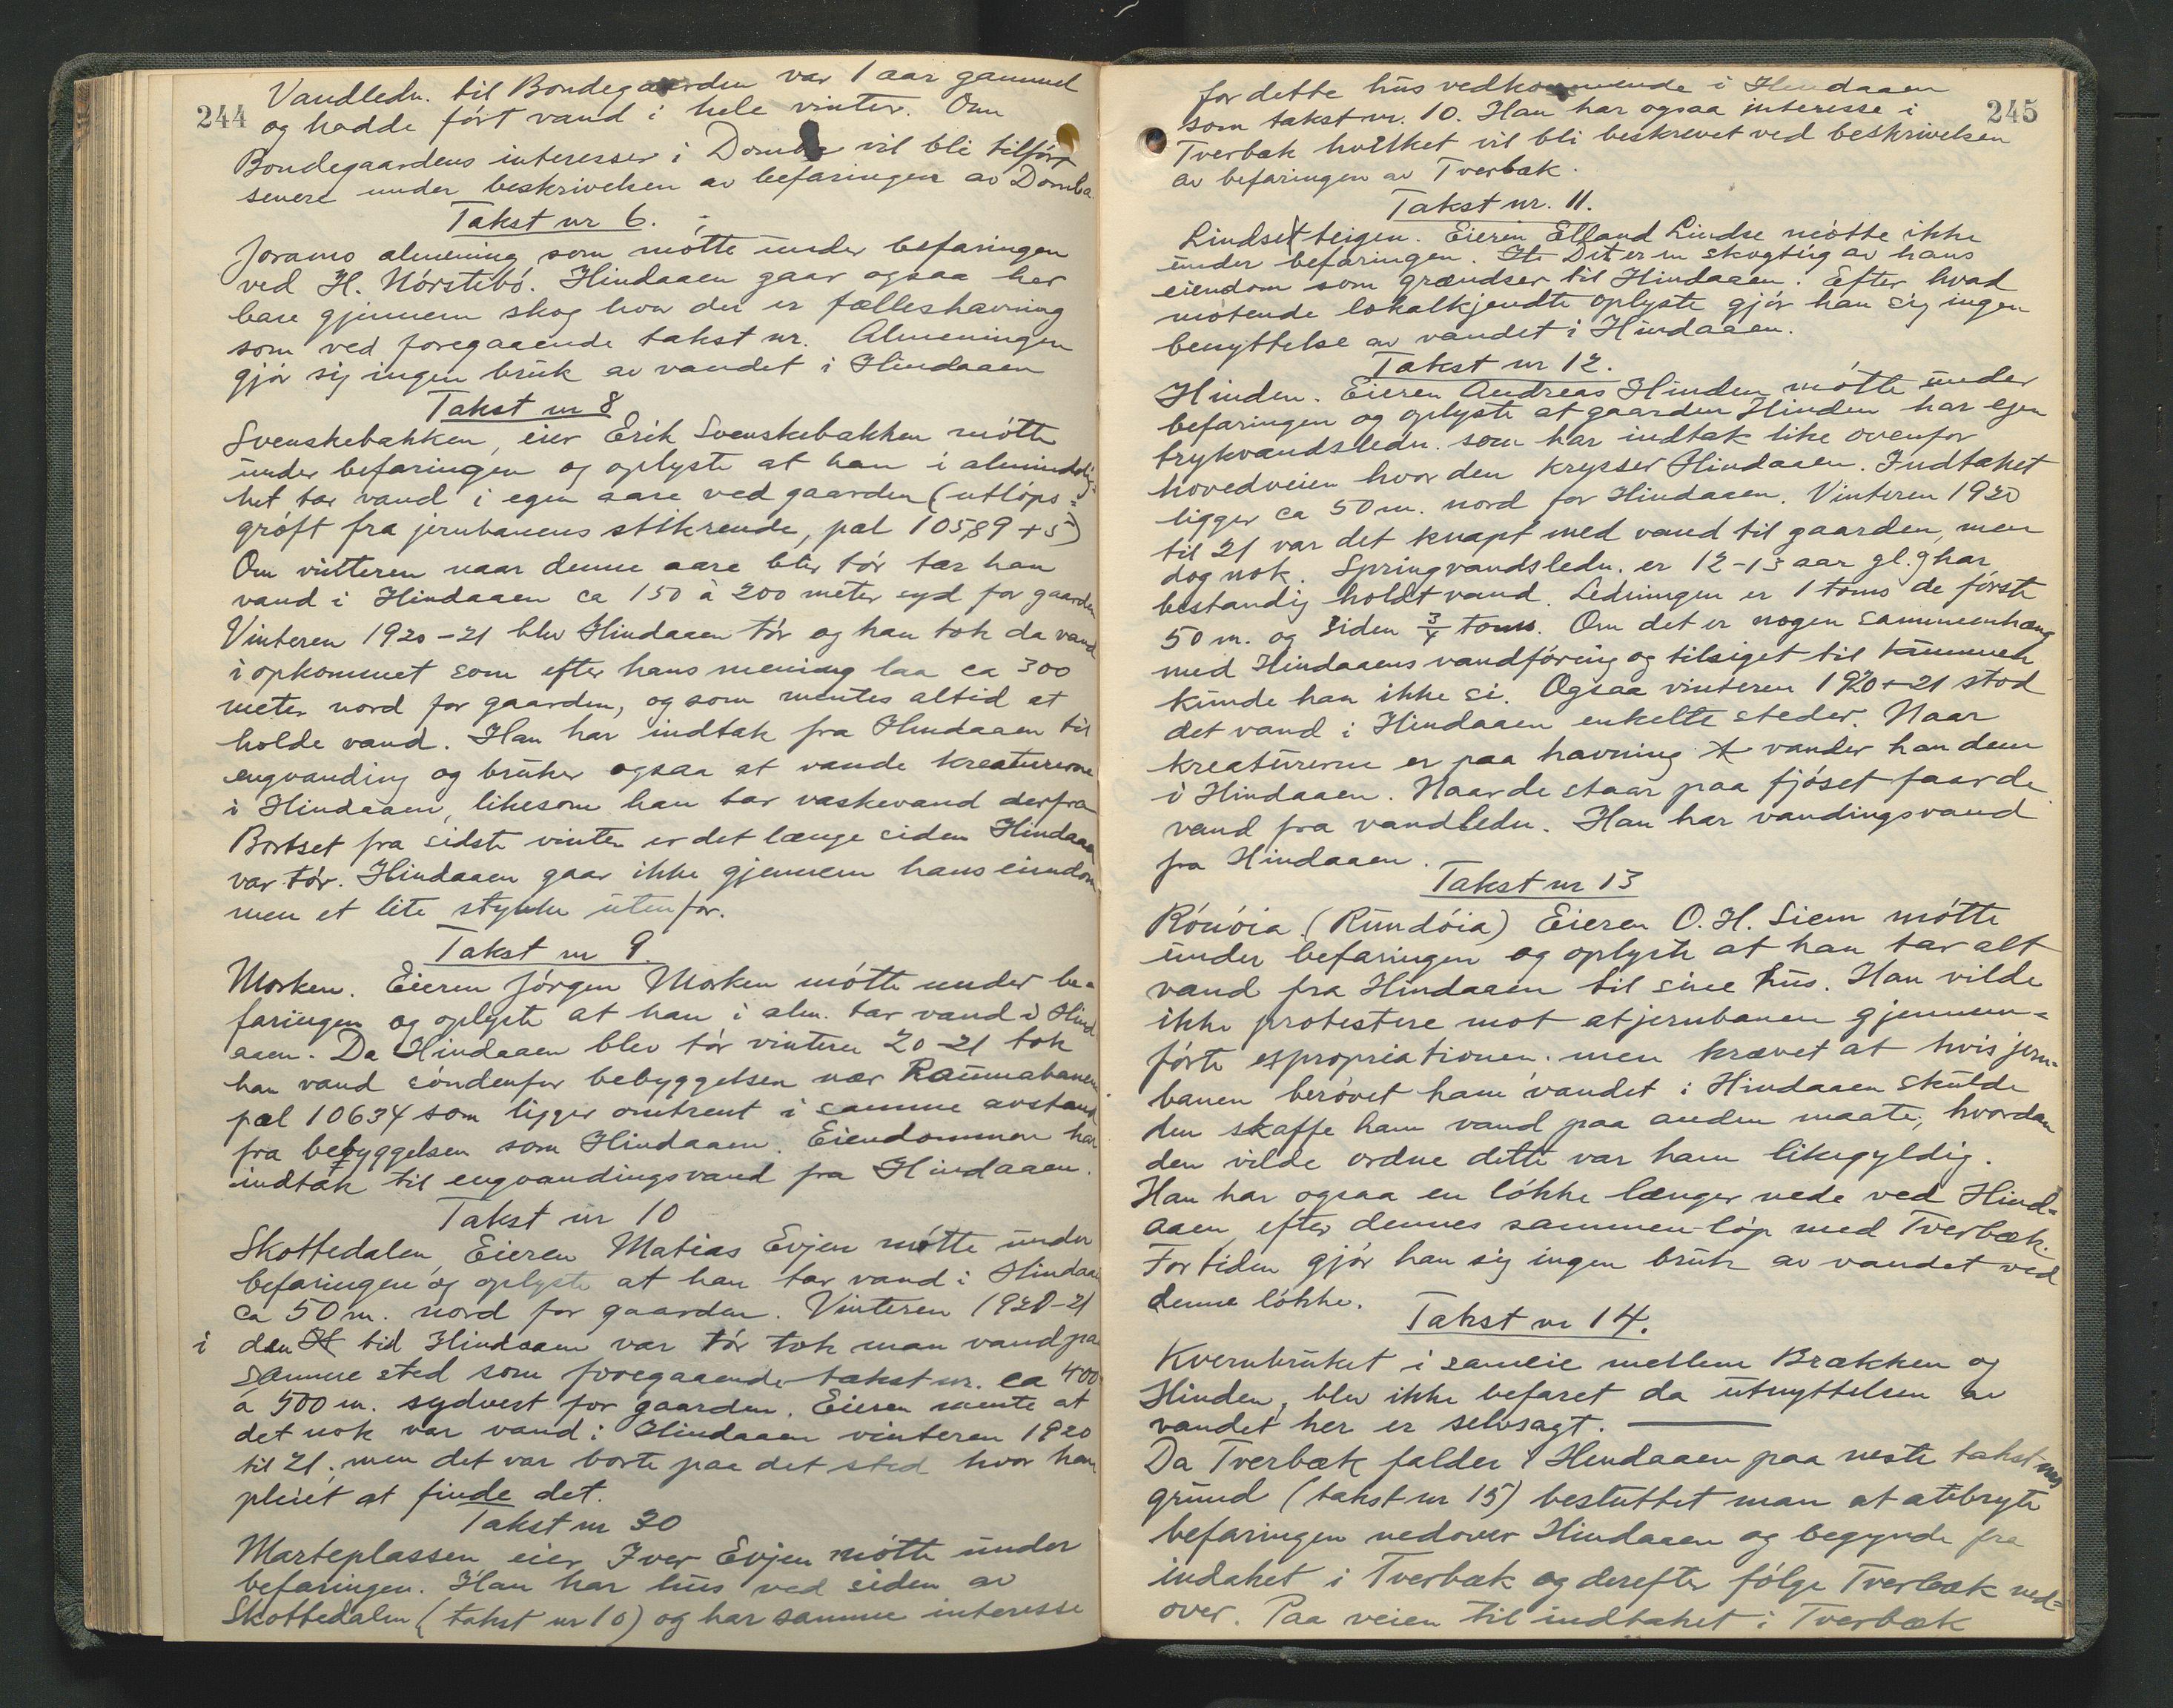 244
Vandledn. til Bondegaarden var 1 aar gammel
og hadde ført vand i hele vinter. Om
Bondegaardens interesser i Domba vil bli tilført
senere under beskrivelsen av befaringen av Domba
Takst nr 6.
Joramo almening som møtte under befaringen
ved H. Nørstebø. Hindaaen gaar ogsaa her
bare gjennem skog hvor der er fælleshavning
som ved foregaaende takst nr. Almeningen
gjør sig ingen bruk av vandet i Hindaaen
Takst nr 8
Svenskebakken, eier Erik Svenskebakken møtte
under befaringen og oplyste at han i almindelig-
het tar vand i egen aare ved gaarden (utløps-
grøft fra jernbanens stikrende, pæl 10589 + 5)
Om vinteren naar denne aare blir tør tar han
vand i Hindaaen ca 150 à 200 meter syd for gaarden
Vinteren 1920-21 blev Hindaaen tør og han tok da vand
i opkommet som efter hans mening laa ca 300
meter nord for gaarden, og som mentes altid at
holde vand. Han har indtak fra Hindaaen til
engvanding og bruker ogsaa at vande kreaturerne
i Hindaaen, likesom han tar vaskevand derfra
Bortset fra sidste vinter er det længe siden Hindaaen
var tør. Hindaaen gaar ikke gjennem hans eiendom
men et lite stykke utenfor.
Takst nr 9.
Morken. Eieren Jørgen Morken møtte under be-
faringen og oplyste at han i alm. tar vand i Hind
aaen. Da Hindaaen blev tør vinteren 20-21 tok
han vand søndenfor bebyggelsen nær Raumabanen
pæl 10634 som ligger omtrent i samme avstand
fra bebyggelsen som Hindaaen. Eiendommen har
indtak til engvandingsvand fra Hindaaen.
Takst nr 10
Skottedalen, Eieren Matias Evjen møtte under
befaringen og oplyste at han tar vand i Hindaaen
ca 50 m. nord for gaarden. Vinteren 1920-21
i den tid Hindaaen var tør tok man vand paa
samme sted som foregaaende takst nr. ca 400
à 500 m. sydvest for gaarden. Eieren mente at
det nok var vand i Hindaaen vinteren 1920
til 21, men det var borte paa det sted hvor han
pleiet at finde det.
Takst nr 30
Marteplassen eier Iver Evjen møtte under
befaringen. Han har hus ved siden av
Skottedalen (takst nr 10) og har samme interesse
245
for dette hus vedkommende i Hindaaen
som takst nr. 10. Han har ogsaa interesse i
Tverbæk hvilket vil bli beskrevet ved beskrivelsen
av befaringen av Tverbæk.
Takst nr. 11.
Lindsetteigen. Eieren Etland Lindse møtte ikke
under befaringen. Det er en skogteig av hans
eiendom som grændser til Hindaaen. Efter hvad
møtende lokalkjendte oplyste gjør han sig ingen
benyttelse av vandet i Hindaaen.
Takst nr 12.
Hinden. Eieren Andreas Hinden møtte under
befaringen og oplyste at gaarden Hinden har egen
trykvandsledn. som har indtak like ovenfor
hovedveien hvor den krysser Hindaaen. Indtaket
ligger ca 50 m. nord for Hindaaen. Vinteren 1920
til 21 var det knapt med vand til gaarden, men
dog nok. Springvandsledn. er 12-13 aar gl. og har
bestandig holdt vand. Ledningen er 1 toms de første
50 m. og siden 3/4 toms. Om det er nogen sammenhæng
med Hindaaens vandføring og tilsiget til kummen
kunde han ikke si. Ogsaa vinteren 1920-21 stod
det vand i Hindaaen enkelte steder. Naar
kreaturerne er paa havning vander han dem
i Hindaaen. Naar de staar paa fjøset faar de
vand fra vandledn. Han har vandingsvand
fra Hindaaen.
Takst nr 13
Rónóia (Rundóia) Eieren O. H. Siem møtte
under befaringen og oplyste at han tar alt
vand fra Hindaaen til sine hus. Han vilde
ikke protestere mot at jernbanen gjennem-
førte expropriationen. men krævet at hvis jern-
banen berøvet ham vandet i Hindaaen skulde
den skaffe ham vand paa anden maate, hvordan
den vilde ordne dette var ham likegyldig.
Han har ogsaa en løkke længer nede ved Hind-
aaen efter dennes sammenløp med Tverbæk.
For tiden gjør han sig ingen bruk av vandet ved
denne løkke.
Takst nr 14.
Kvernbruket i sameie mellem Brækken og
Hinden, blev ikke befaret da utnyttelsen av
vandet her er selvsagt.
Da Tverbæk falder i Hindaaen paa neste takst nrs
grund (takst nr 15) besluttet man at avbryte
befaringen nedover Hindaaen og begynde fra
indtaket i Tverbæk og derefter følge Tverbæk ned-
over. Paa veien til indtaket i Tverbæk